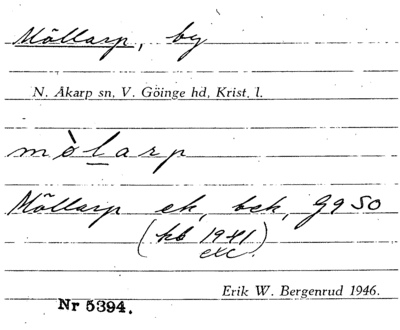 Möllarp, by
N. Åkarp sn, V. Göinge hd, Krist. l.
mòlarp
Möllarp ek, bek, Gg 50
(kb 1941)
exc.
Erik W. Bergenrud 1946.
Nr 5394.